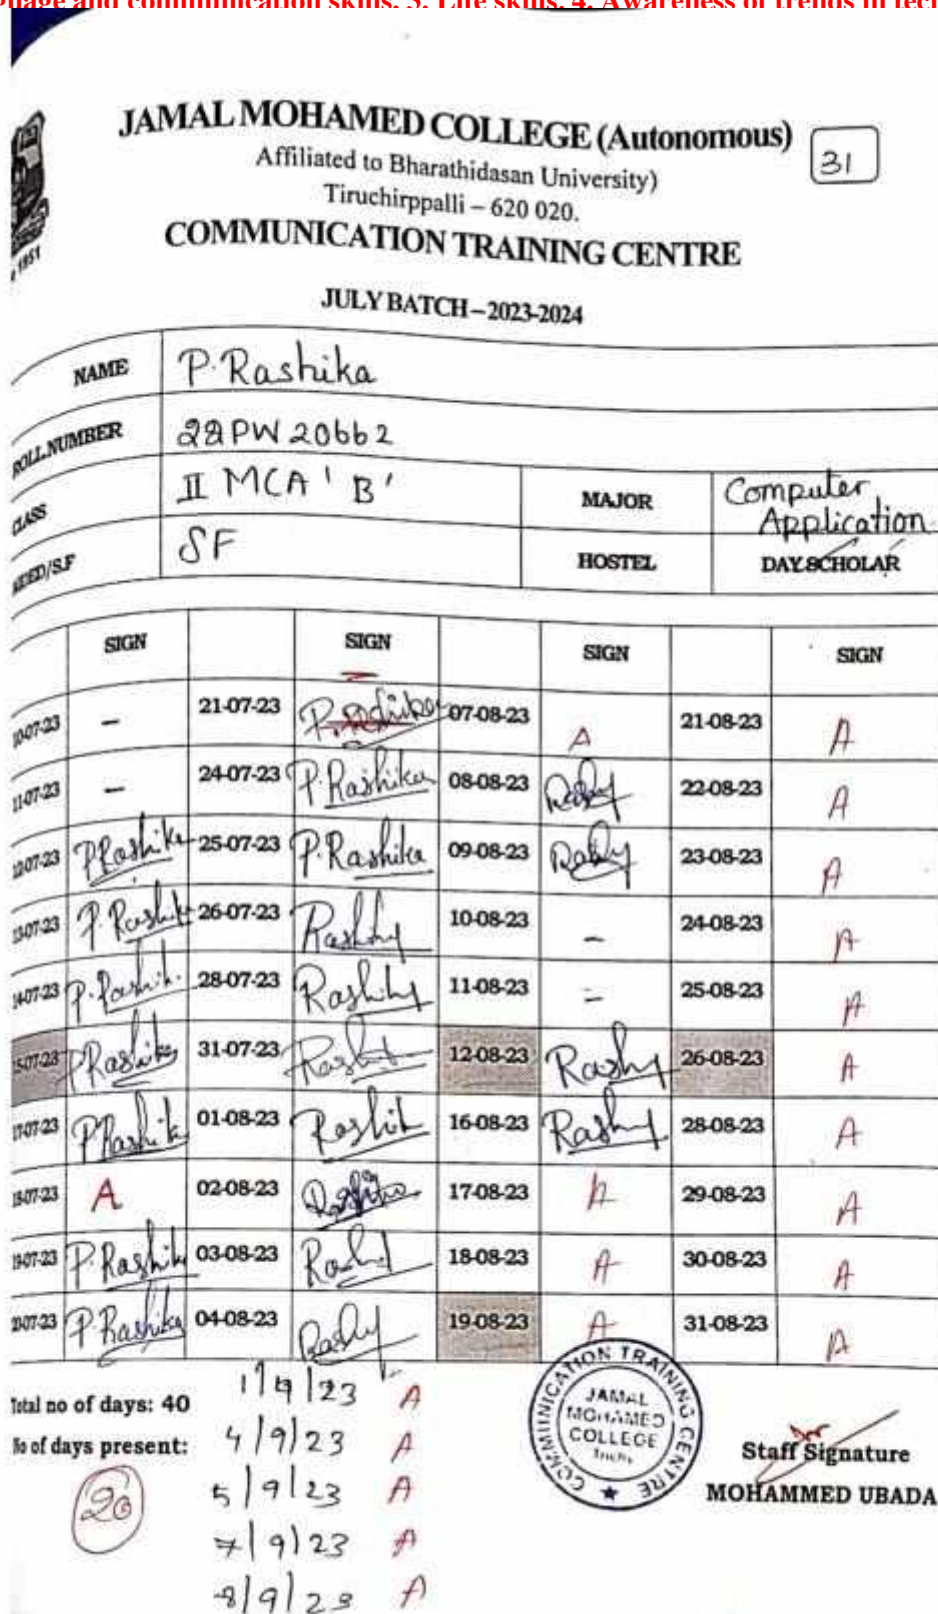 and communication skills. 3. Life skills. 4. Awareness of trends in tec
JAMAL MOHAMED COLLEGE (Autonomous)
31
Affiliated to Bharathidasan University)
Tiruchirppalli – 620 020.
COMMUNICATION TRAINING CENTRE
1951
JULY BATCH – 2023-2024
NAME P. Rashika
ROLL NUMBER 22PW20662
CLASS II MCA 'B' MAJOR Computer Application
AIDED/S.F SF HOSTEL DAY SCHOLAR
SIGN SIGN SIGN SIGN
10-07-23 – 21-07-23 P. Rashika 07-08-23 A 21-08-23 A
11-07-23 – 24-07-23 P. Rashika 08-08-23 22-08-23 A
12-07-23 P Rashika 25-07-23 P. Rashika 09-08-23 23-08-23 A
13-07-23 P. Rashika 26-07-23 10-08-23 – 24-08-23 A
14-07-23 P. Rashik 28-07-23 11-08-23 – 25-08-23 A
15-07-23 P Rashika 31-07-23 12-08-23 Rashy 26-08-23 A
17-07-23 P Rashik 01-08-23 Rashik 16-08-23 Rashy 28-08-23 A
18-07-23 A 02-08-23 17-08-23 A 29-08-23 A
19-07-23 P. Rashik 03-08-23 18-08-23 A 30-08-23 A
20-07-23 P. Rashika 04-08-23 Rashy 19-08-23 A 31-08-23 A
Total no of days: 40 1/9/23 A
No of days present: 4/9/23 A
20 5/9/23 A
7/9/23 A
8/9/23 A
COMMUNICATION TRAINING CENTRE
JAMAL
MOHAMED
COLLEGE
Staff Signature
MOHAMMED UBADA